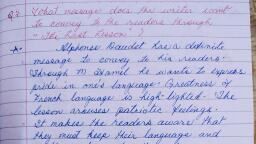 Q.7 What message does the writer want
to convey to the readers through
"The Last Lesson"?
A. Alphonse Daudet has a definite
message to convey to his readers.
Through M Hamel he wants to express
pride in one's language. Greatness of
French language is high-lighted. The
lesson arouses patriotic feelings.
It makes the readers aware that
they must keep their language and